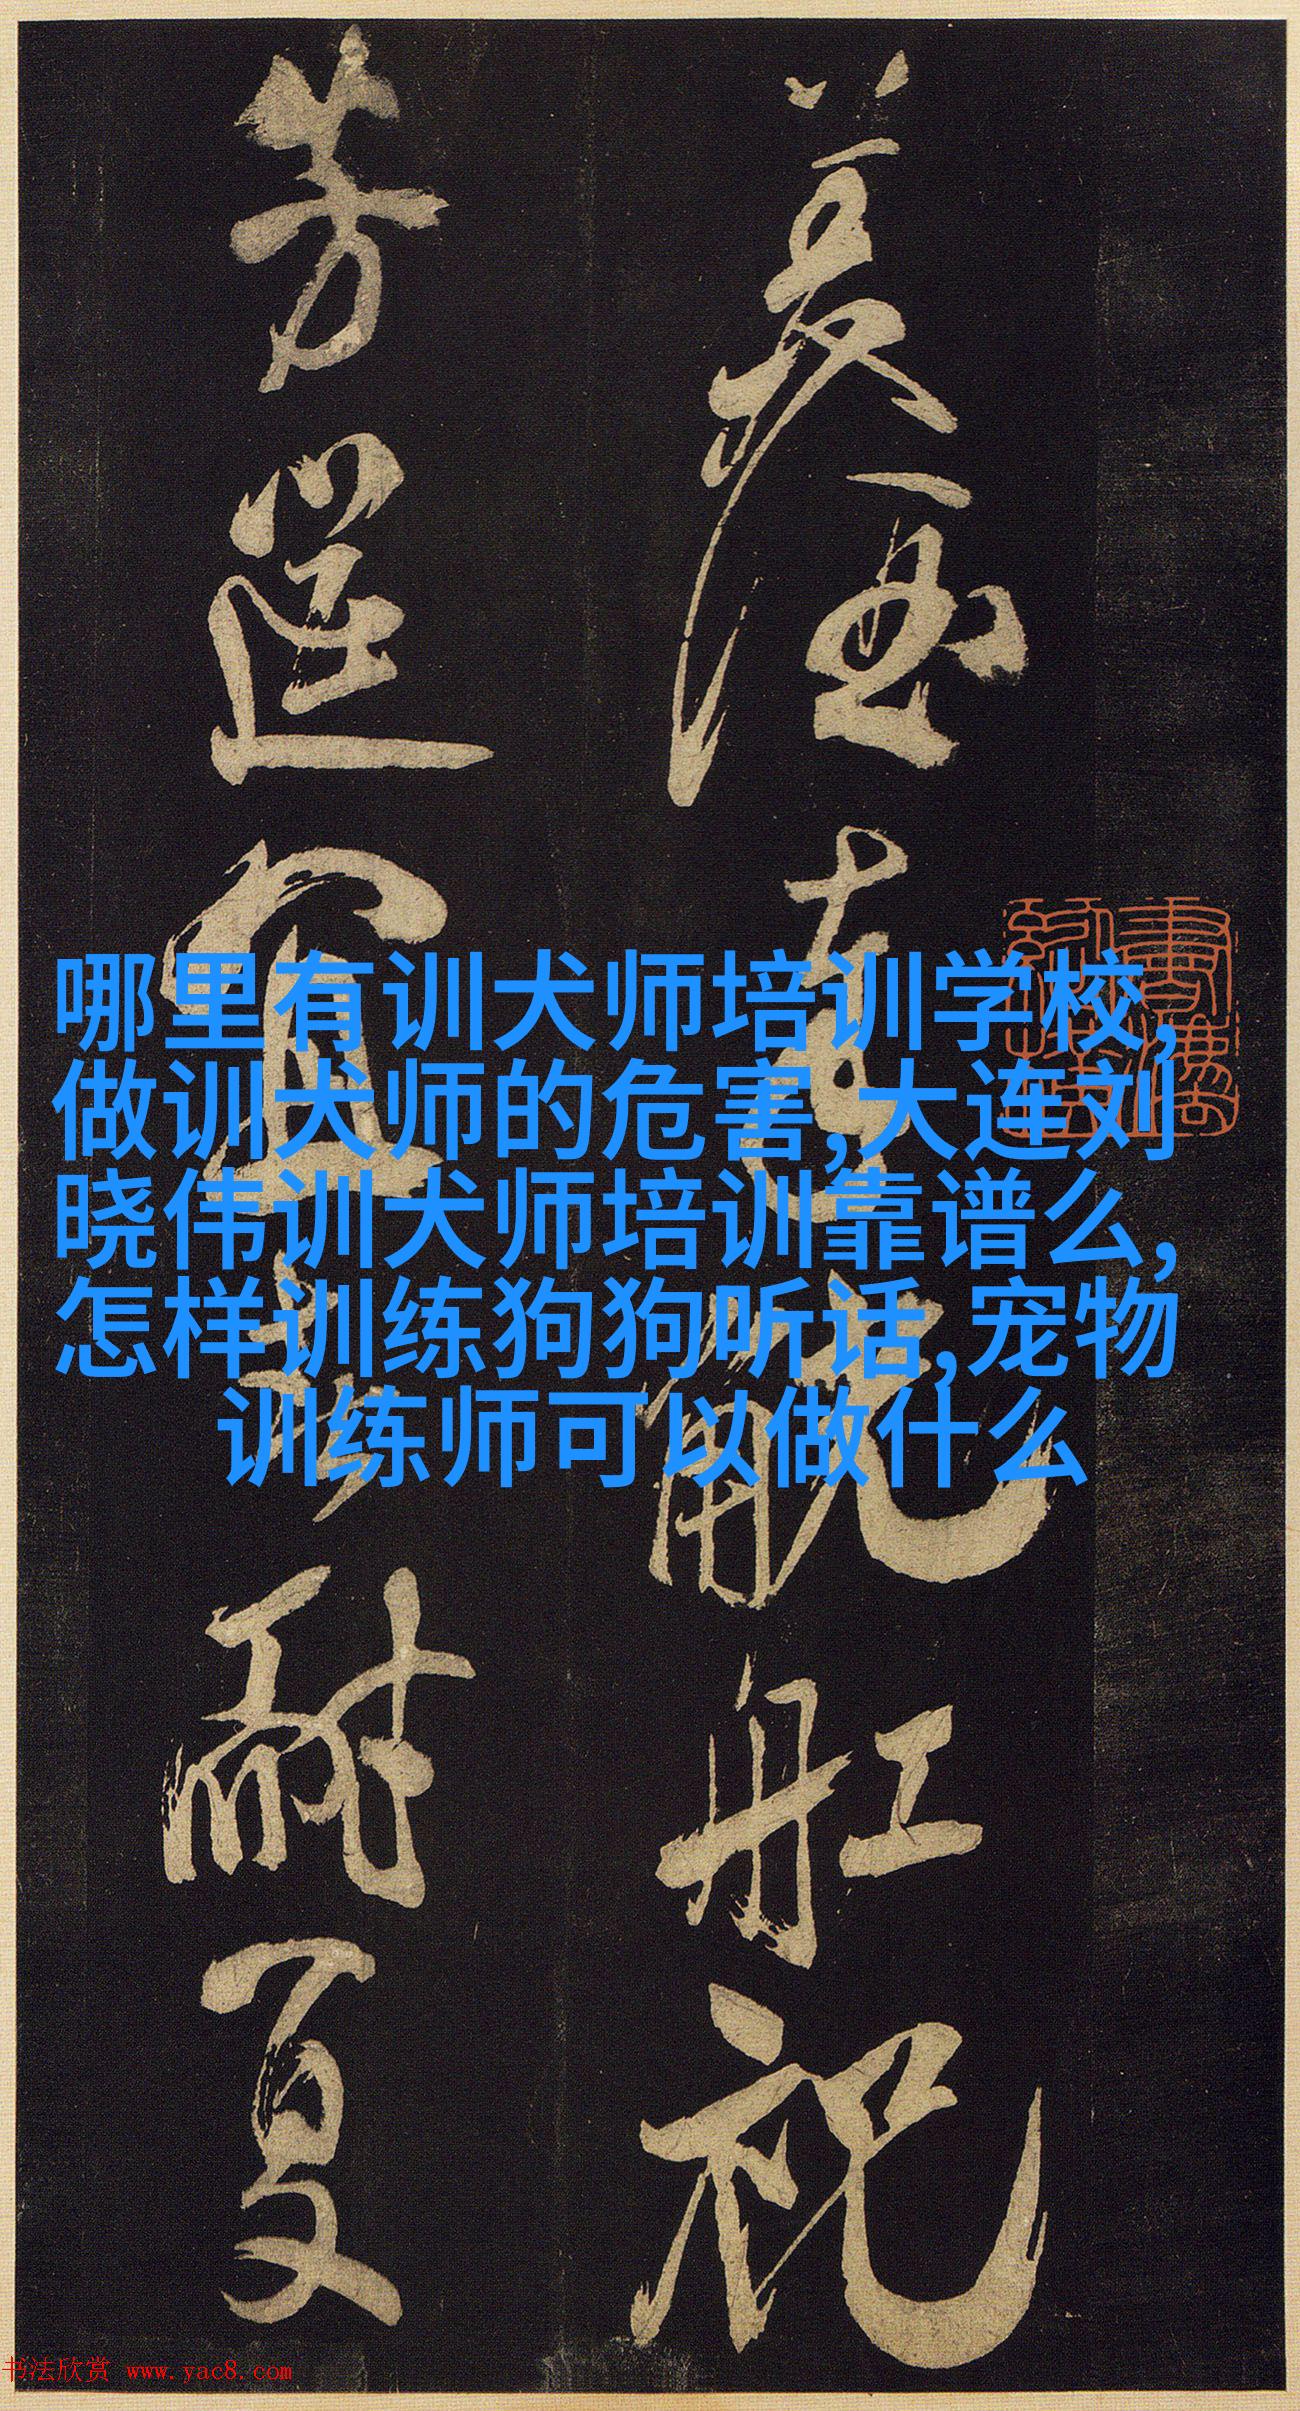 舡祝
芳筵宜耐夏
哪里有训犬师培训学校,
做训犬师的危害,大连刘
晓伟训犬师培训靠谱么,
怎样训练狗狗听话,宠物
训练师可以做什么
书法欣赏 www.yac8.com